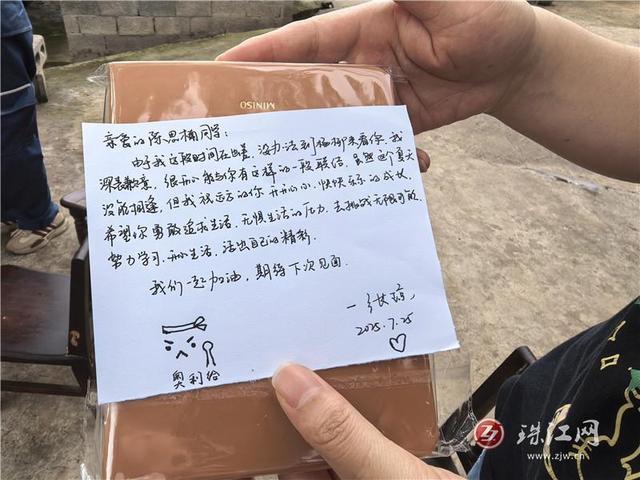 MINISO
亲爱的陈思楠同学:
由于我这段时间在出差,没办法到福柳来看你,我
深表歉意,很开心能与你有这样的一段联结,虽然这个夏天
没能相逢,但我祝远方的你开开心心、快快乐乐的成长,
希望你勇敢追求生活,无惧生活的压力,去挑战无限可能,
努力学习,开心生活,活出自己的精彩.
我们一起加油,期待下次见面.
2025.7.25
奥利给
珠江网
www.zjw.cn